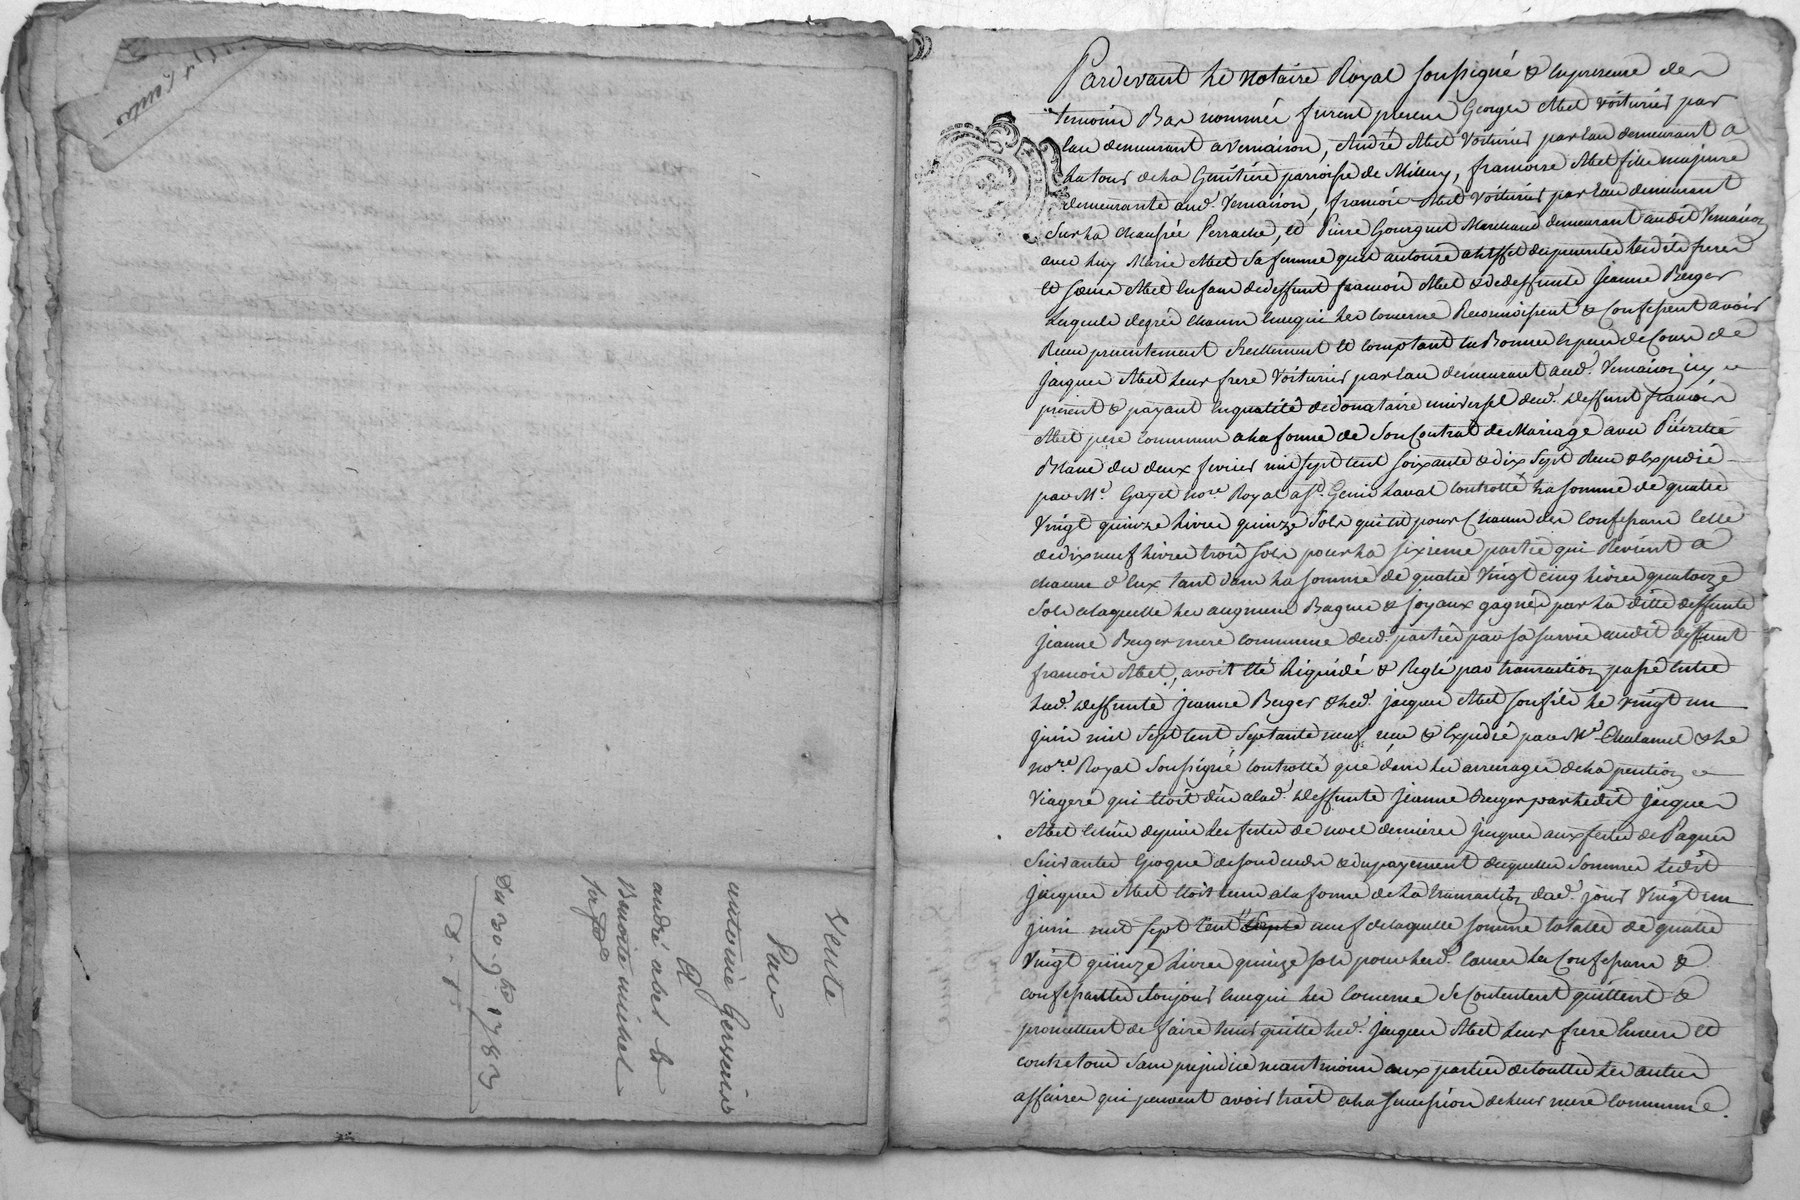 Vente
Par
antoine Gervais
A
andré abel &
Benoite michel
sa f.e
Du 30. 9bre 1783
Pardevant Le Notaire Royal soussigné & En presence des
temoins Bas nommés furent presens George Abel voiturier par
Eau demeurant a Vernaison, André Abel Voiturier par Eau demeurant a
La tour de La Gruitiere parroisse de Millery, francoise Abel fille majeure
demeurante aud. Vernaison, francois Abel Voiturier par Eau demeurant
sur La Chaussée Perrache, Et Pierre Gourguet Marchand demeurant audit Vernaison
avec Luy Marie Abel sa femme quil autorise a L'effet des presentes Lesdits freres
Et soeurs Abel Enfans de deffunt francois Abel & de deffunte Jeanne Berger
Lesquels de gré chacun En ce qui Les concerne Reconnoissent & Confessent avoir
Recu presentement Reellement Et comptant En Bonnes Especes de Cours de
Jacques Abel Leur frere Voiturier par Eau demeurant aud. Vernaison icy
present & payant En qualité de donataire universel dud. deffunt francois
Abel pere commun a La forme de son Contrat de Mariage avec Pierrette
Blanc du deux fevrier mil sept cent soixante & dix sept Recu & Expedié
par Me. Gayet nore. Royal a St. Genis Laval Controllé La somme de quatre
Vingt quinze Livres quinze sols qui est pour Chacun des Confessans Celle
de dix neuf Livres trois sols pour La sixieme partie qui Revient a
chacun d'Eux tant dans La somme de quatre Vingt cinq Livres quatorze
sols a Laquelle Les augment Bagues & Joyaux gagnés par La ditte deffunte
Jeanne Berger mere commune desd. parties par sa survie audit deffunt
francois Abel, avoit Eté Liquidé & Reglé par transaction passé Entre
Lad. deffunte Jeanne Berger & Led. Jacques Abel son fils Le Vingt un
Juin mil sept cent septante neuf recu & Expedié par Me. Chalamel & Le
nore. Royal soussigné Controllé que dans Les arrerages de La pention
Viagere qui Etoit dûe a Lad. deffunte Jeanne Berger par Ledit Jacques
Abel Echûs depuis Les fetes de noel dernieres jusques aux fetes de Paques
suivantes Epoque de son deces & du payement desquelles sommes Ledit
Jacques Abel Etoit tenu a La forme de La transaction dud. jour Vingt un
juin mil sept cent neuf de Laquelle somme totalle de quatre
Vingt quinze Livres quinze sols pour Lesd. causes Les Confessans &
confessantes toujours En ce qui Les Concerne se Contentent quittent &
promettent de faire tenir quitte Led. Jacques Abel Leur frere Envers Et
contre tous sans prejudice neantmoins aux parties de touttes Les autres
affaires qui peuvent avoir trait a La succession de Leur mere commune.